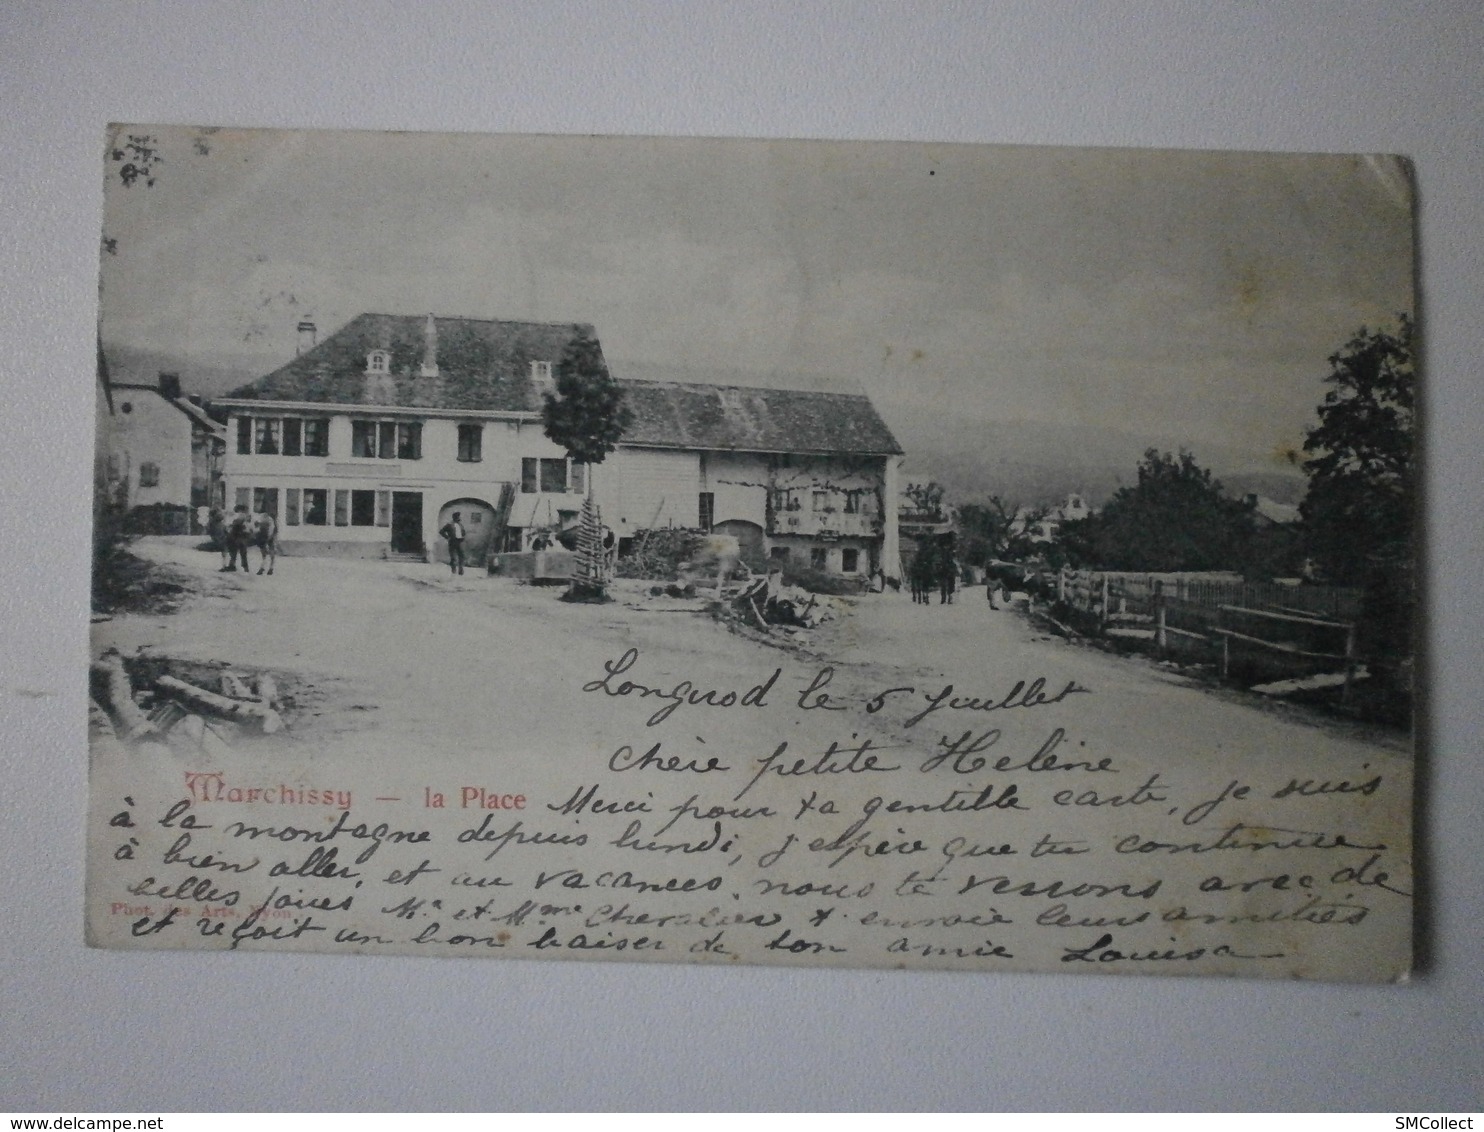 Longirod le 5 Juillet
Chère petite Helène
Marchissy — la Place
Merci pour ta gentille carte, je suis
à la montagne depuis lundi, j'espère que tu continue
à bien aller, et au vacances, nous te verrons avec de
belles joues Mr et Mme Chevalier t'envoie leurs amitiés
Phot. des Arts, Nyon
et reçoit un bon baiser de ton amie Louisa
www.delcampe.net
SMCollect